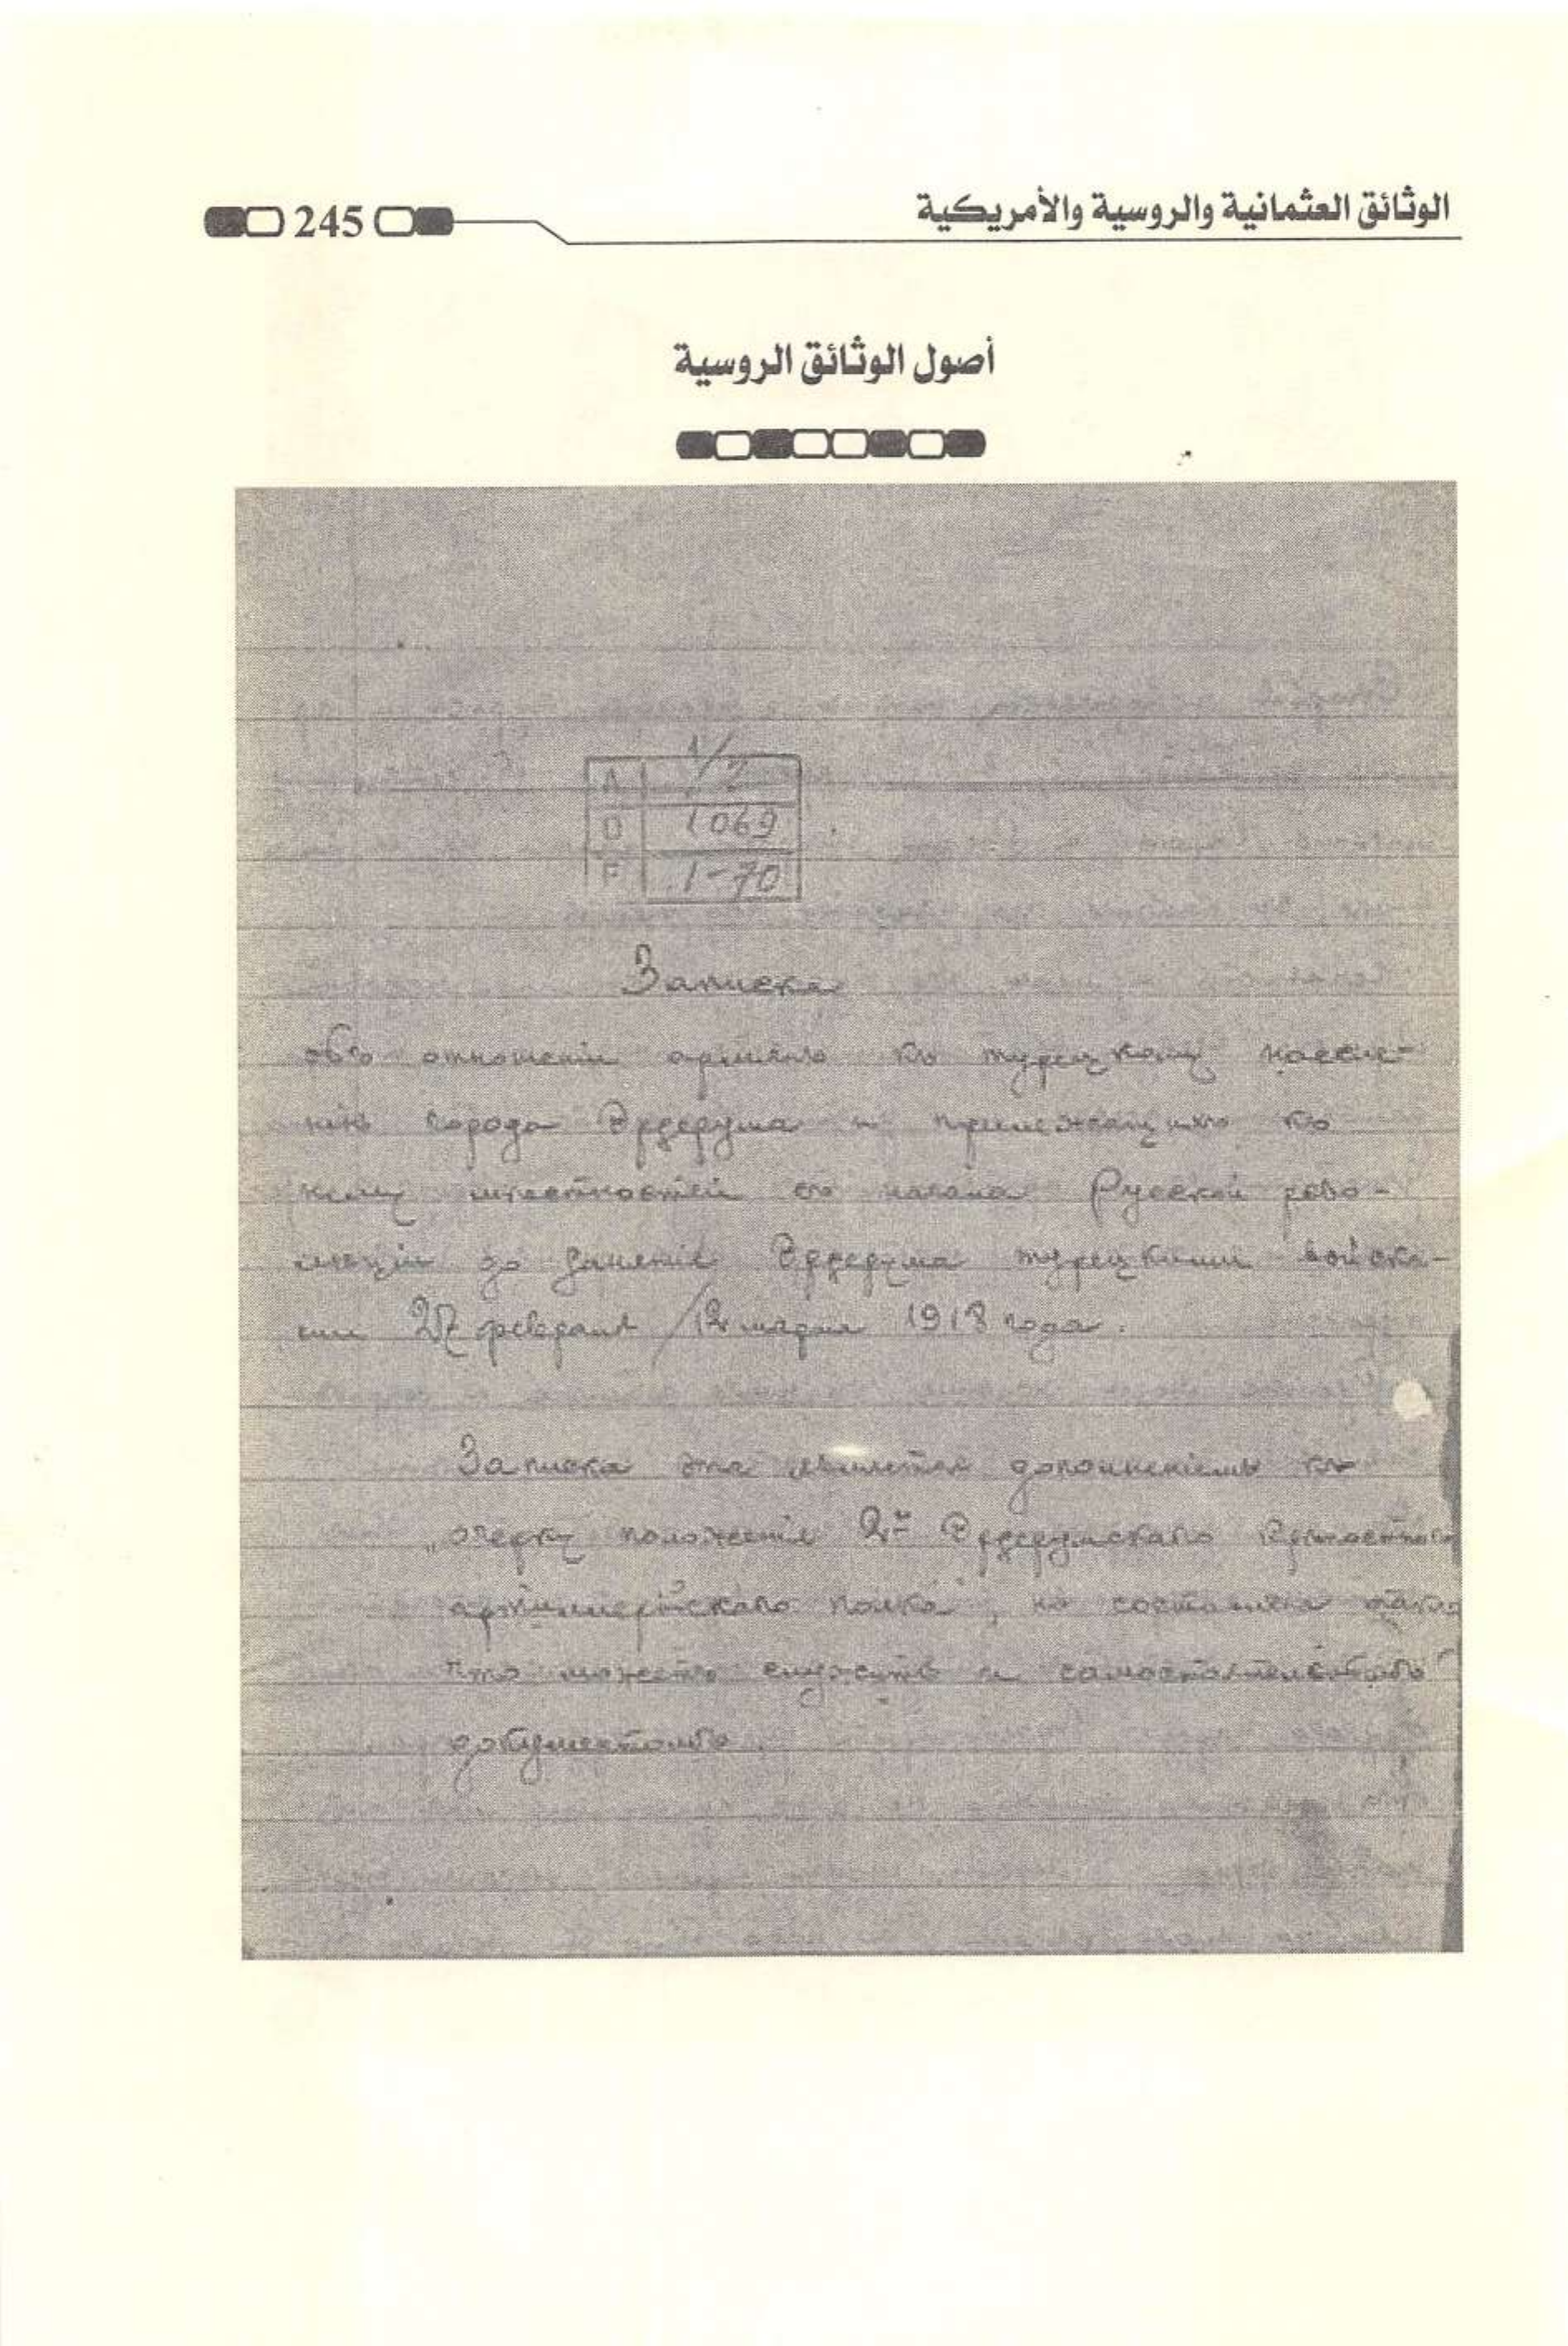 الوثائق العثمانية والروسية والأمريكية
245
أصول الوثائق الروسية
1/2
A
D 1069
F 1-70
Записка
объ отношеніи армянъ къ турецкому населе-
нію города Эрзерума и прилежащихъ къ
нему мѣстностей съ начала Русской рево-
люціи до занятія Эрзерума турецкими войска-
ми 27 февраля/12 марта 1918 года.
Записка эта является дополненіемъ къ
„очерку положенія 2го Эрзерумскаго Крѣпостного
артиллерійскаго полка", но составлена такъ
что можетъ служить и самостоятельнымъ
документомъ.